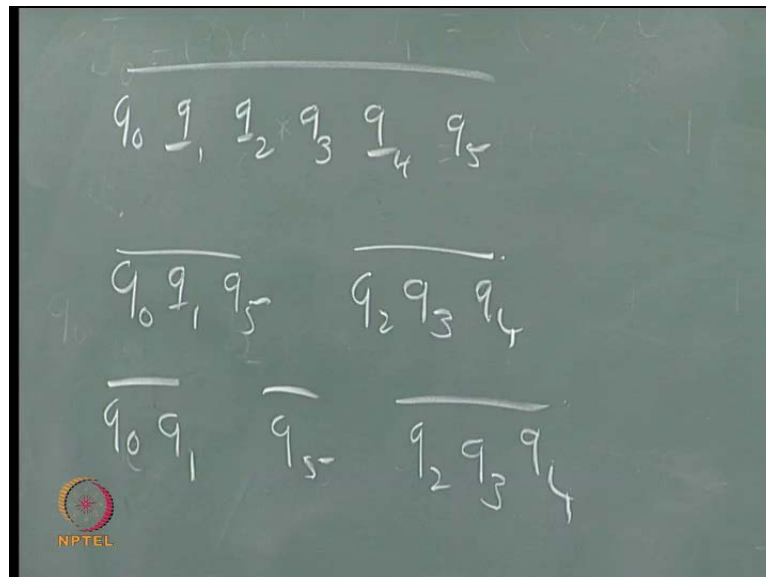 q₀ q₁ q₂ q₃ q₄ q₅
q₀ q₁ q₅ q₂ q₃ q₄
q₀ q₁ q₅ q₂ q₃ q₄
NPTEL